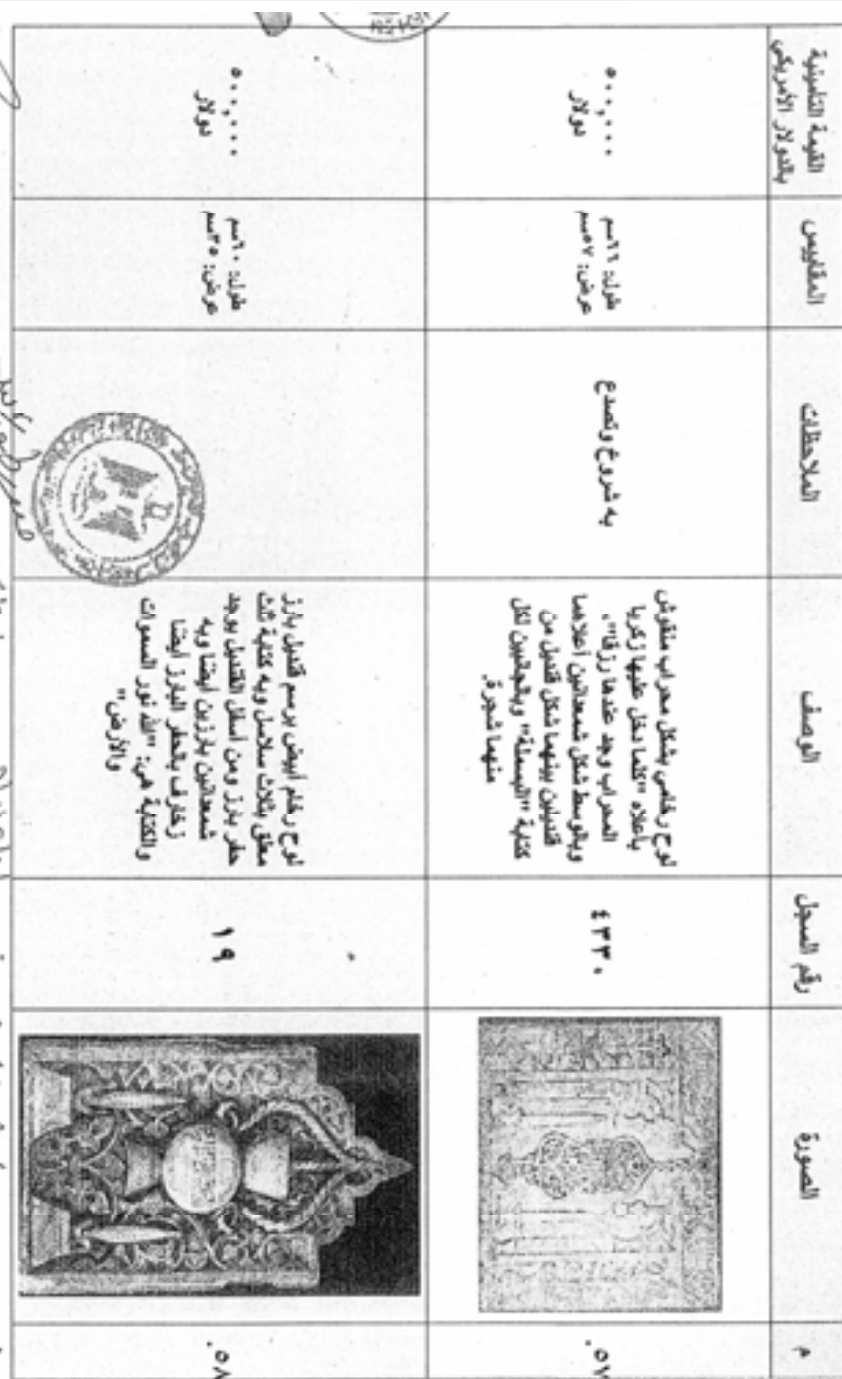 م
الصورة
رقم السجل
الوصف
الملاحظات
المقاييس
القيمة التأمينية
بالدولار الأمريكي
٥٧.
٤٣٣٠
لوح رخامي بشكل محراب منقوش
بأعلاه "كلما دخل عليها زكريا
المحراب وجد عندها رزقا"،
وبالوسط شكل شمعدانين أعلاهما
قنديلين بينهما شكل قنديل من
كتابة "البسملة" وبالجانبين لكل
منهما شجرة.
به شروخ وتصدع
طول: ٦٦سم
عرض: ٥٧سم
٥٠٠,٠٠٠
دولار
٥٨.
١٩
لوح رخام أبيض برسم قنديل بارز
معلق بثلاث سلاسل وبه كتابة ثلث
حفر بارز ومن أسفل القنديل يوجد
شمعدانين بارزين أيضا وبه
زخارف بالحفر البارز أيضا
والكتابة هي: "الله نور السموات
والأرض"
طول: ٦٠سم
عرض: ٣٥سم
٥٠٠,٠٠٠
دولار